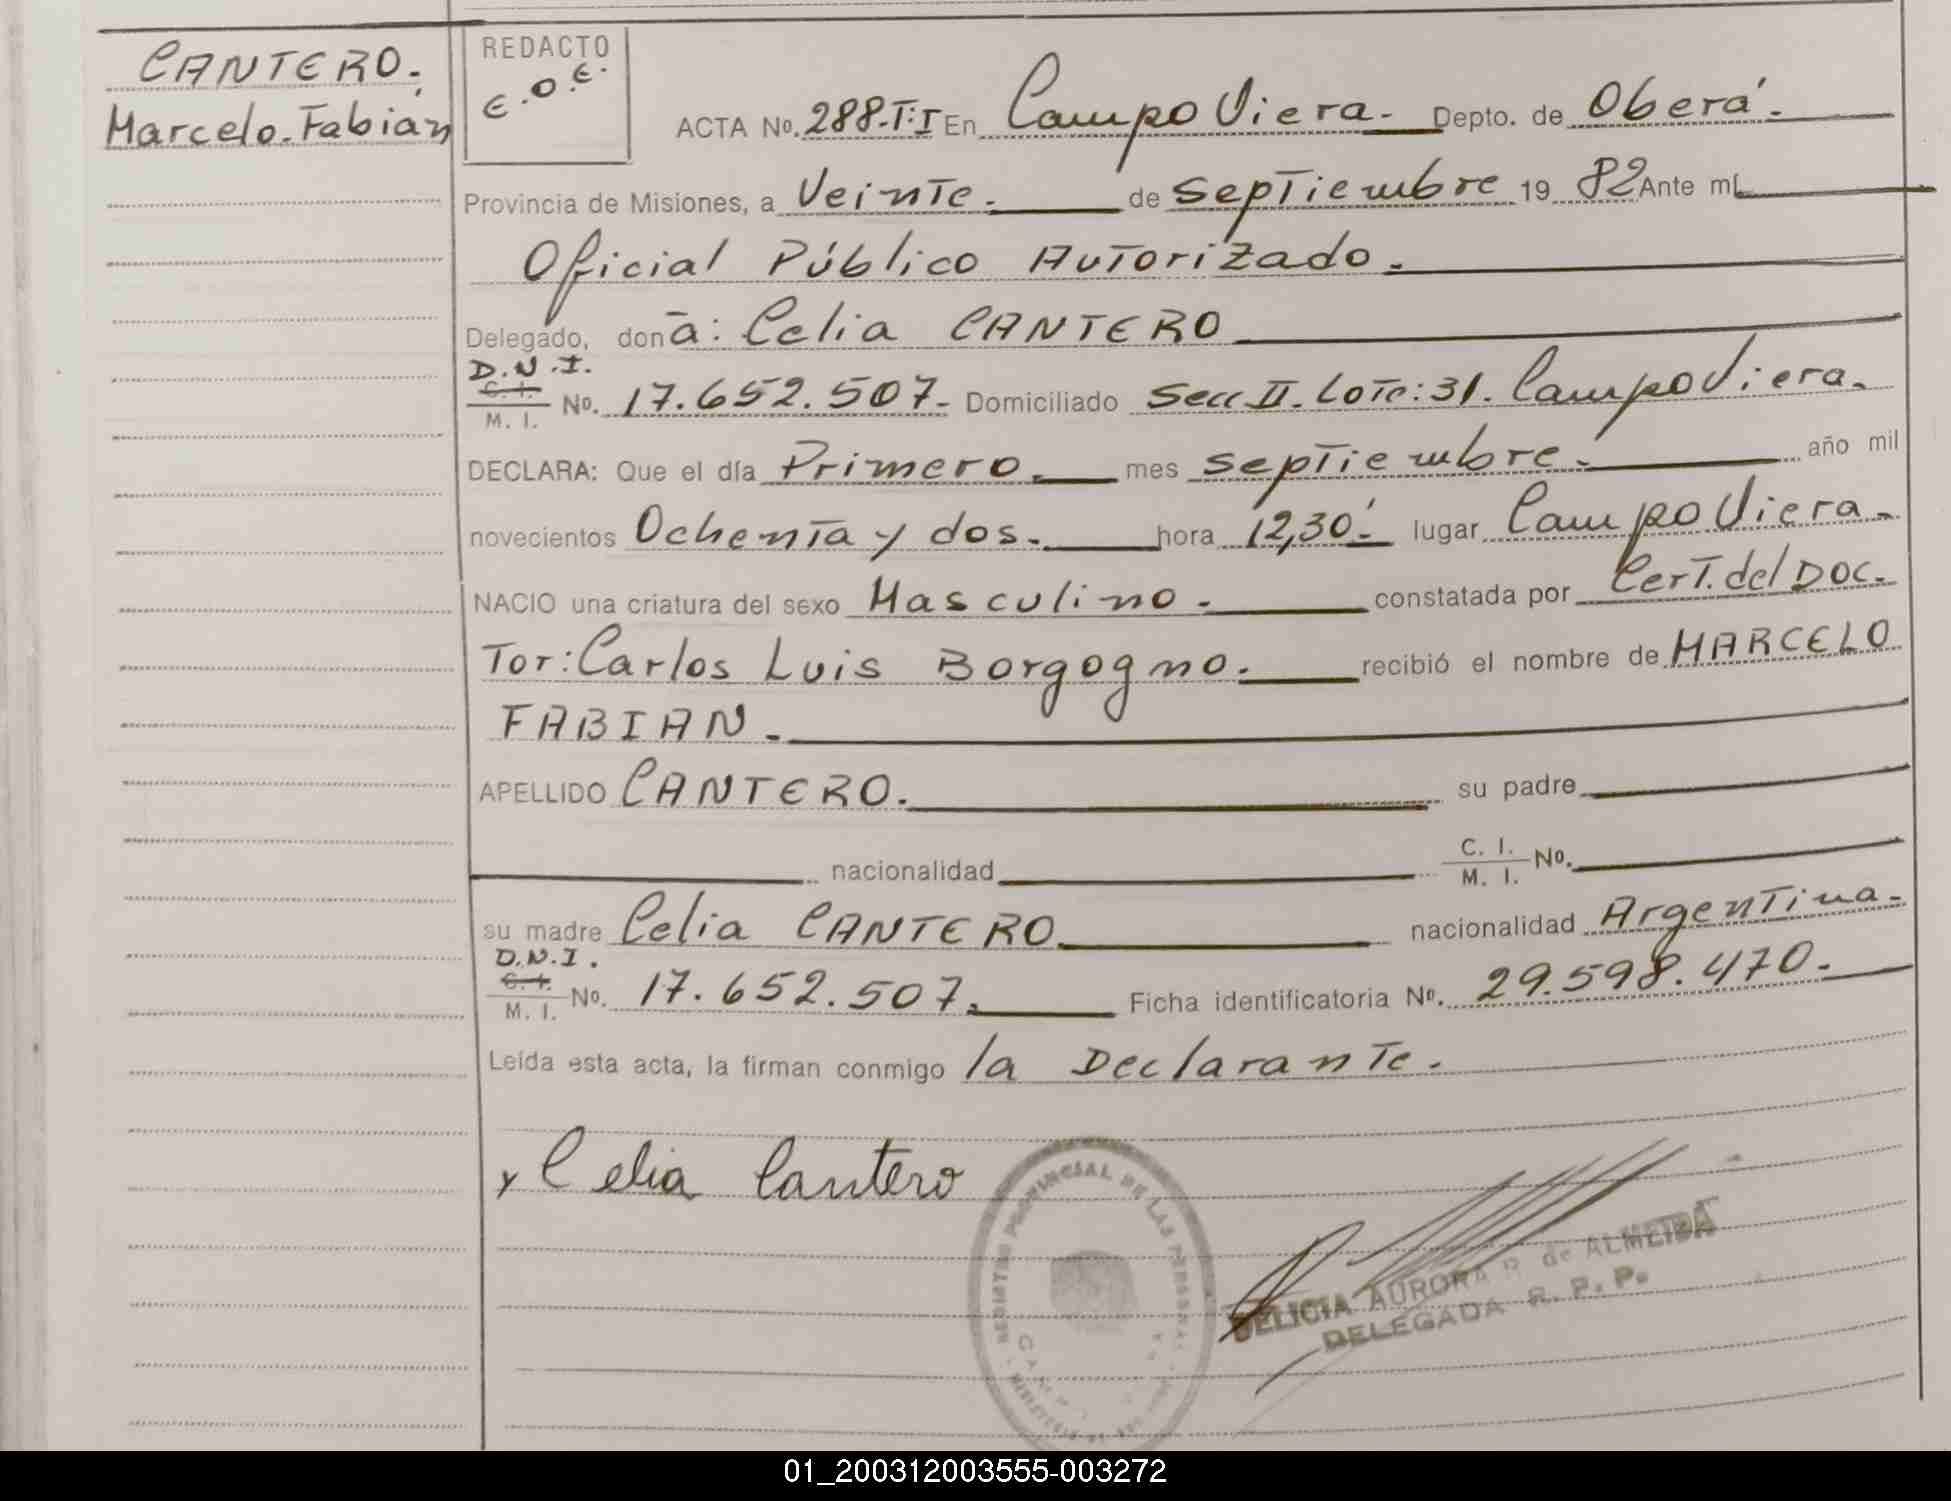 CANTERO.
Marcelo.Fabián
REDACTO
E.O.E.
ACTA No. 288-T:I En Campo Viera. Depto. de Oberá.
Provincia de Misiones, a Veinte. de septiembre 19 82 Ante mí
Oficial Público Autorizado.
Delegado, doña: Celia CANTERO
D.N.I.
C. I.
M. I. No. 17.652.507. Domiciliado Secc II. Lote: 31. Campo Viera.
DECLARA: Que el día Primero. mes septiembre. año mil
novecientos Ochenta y dos. hora 12,30' lugar Campo Viera.
NACIO una criatura del sexo Masculino. constatada por Cert. del DOC.
Tor: Carlos Luis Borgogno. recibió el nombre de MARCELO
FABIAN.
APELLIDO CANTERO. su padre
nacionalidad C. I. M. I. No.
su madre Celia CANTERO nacionalidad Argentina.
D.N.I.
C. I.
M. I. No. 17.652.507. Ficha identificatoria No. 29.598.470.
Leída esta acta, la firman conmigo la Declarante.
x Celia Cantero
PROVINCIAL DE LAS PERSONAS
DELICIA AURORA R de ALMEIDA
DELEGADA R. P. P.
01_200312003555-003272